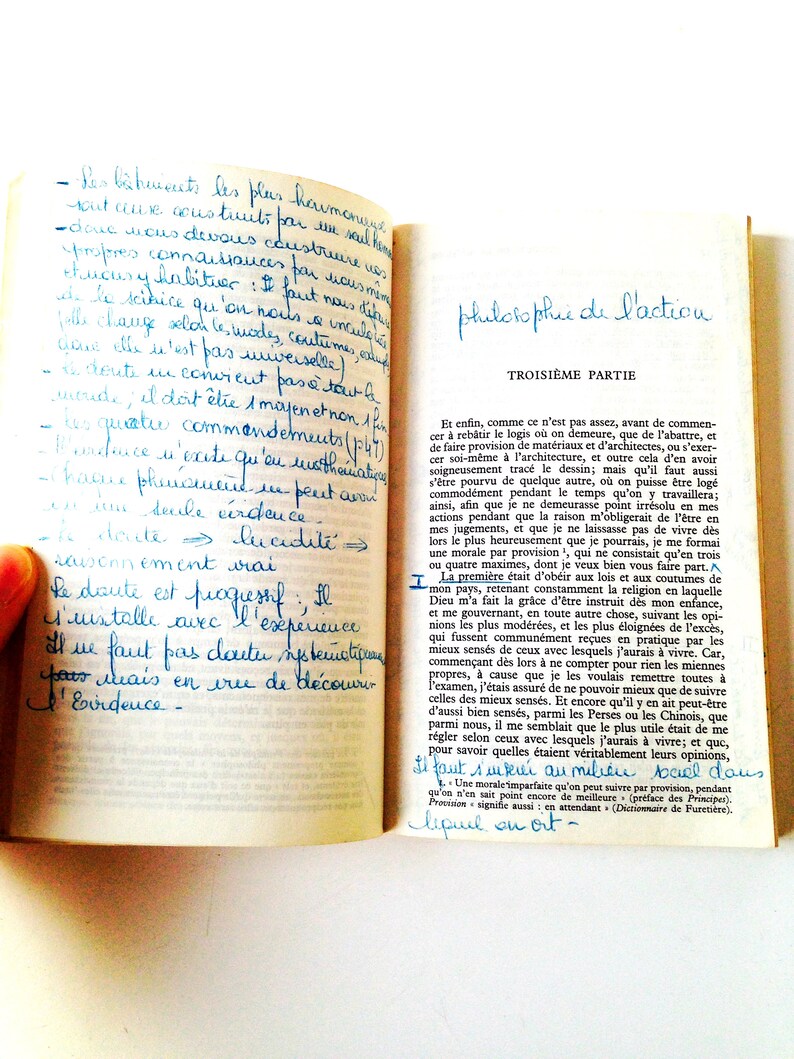 - Les bâtiments les plus harmonieux
sont ceux construits par un seul homme
- donc nous devons construire nos
propres connaissances par nous même
et nous y habituer : Il faut nous défaire
de la science qu'on nous a inculquée
(elle change selon les modes, coutumes, exemples
donc elle n'est pas universelle)
- Le doute ne convient pas à tout le
monde ; il doit être 1 moyen et non 1 fin
- Les quatre commandements (p47)
- L'évidence n'existe qu'en mathématiques
- Chaque phénomène ne peut avoir
en une seule évidence
- Le doute ⇒ lucidité ⇒
raisonnement vrai
Le doute est progressif : Il
s'installe avec l'expérience
Il ne faut pas douter systématiquement
mais en vue de découvrir
l'Evidence -
philosophie de l'action
TROISIÈME PARTIE
Et enfin, comme ce n'est pas assez, avant de commen-
cer à rebâtir le logis où on demeure, que de l'abattre, et
de faire provision de matériaux et d'architectes, ou s'exer-
cer soi-même à l'architecture, et outre cela d'en avoir
soigneusement tracé le dessin; mais qu'il faut aussi
s'être pourvu de quelque autre, où on puisse être logé
commodément pendant le temps qu'on y travaillera;
ainsi, afin que je ne demeurasse point irrésolu en mes
actions pendant que la raison m'obligerait de l'être en
mes jugements, et que je ne laissasse pas de vivre dès
lors le plus heureusement que je pourrais, je me formai
une morale par provision ¹, qui ne consistait qu'en trois
ou quatre maximes, dont je veux bien vous faire part.
I La première était d'obéir aux lois et aux coutumes de
mon pays, retenant constamment la religion en laquelle
Dieu m'a fait la grâce d'être instruit dès mon enfance,
et me gouvernant, en toute autre chose, suivant les opi-
nions les plus modérées, et les plus éloignées de l'excès,
qui fussent communément reçues en pratique par les
mieux sensés de ceux avec lesquels j'aurais à vivre. Car,
commençant dès lors à ne compter pour rien les miennes
propres, à cause que je les voulais remettre toutes à
l'examen, j'étais assuré de ne pouvoir mieux que de suivre
celles des mieux sensés. Et encore qu'il y en ait peut-être
d'aussi bien sensés, parmi les Perses ou les Chinois, que
parmi nous, il me semblait que le plus utile était de me
régler selon ceux avec lesquels j'aurais à vivre; et que,
pour savoir quelles étaient véritablement leurs opinions,
Il faut s'insérer au milieu social dans
1. « Une morale imparfaite qu'on peut suivre par provision, pendant
qu'on n'en sait point encore de meilleure » (préface des Principes).
Provision « signifie aussi : en attendant » (Dictionnaire de Furetière).
lequel on vit -